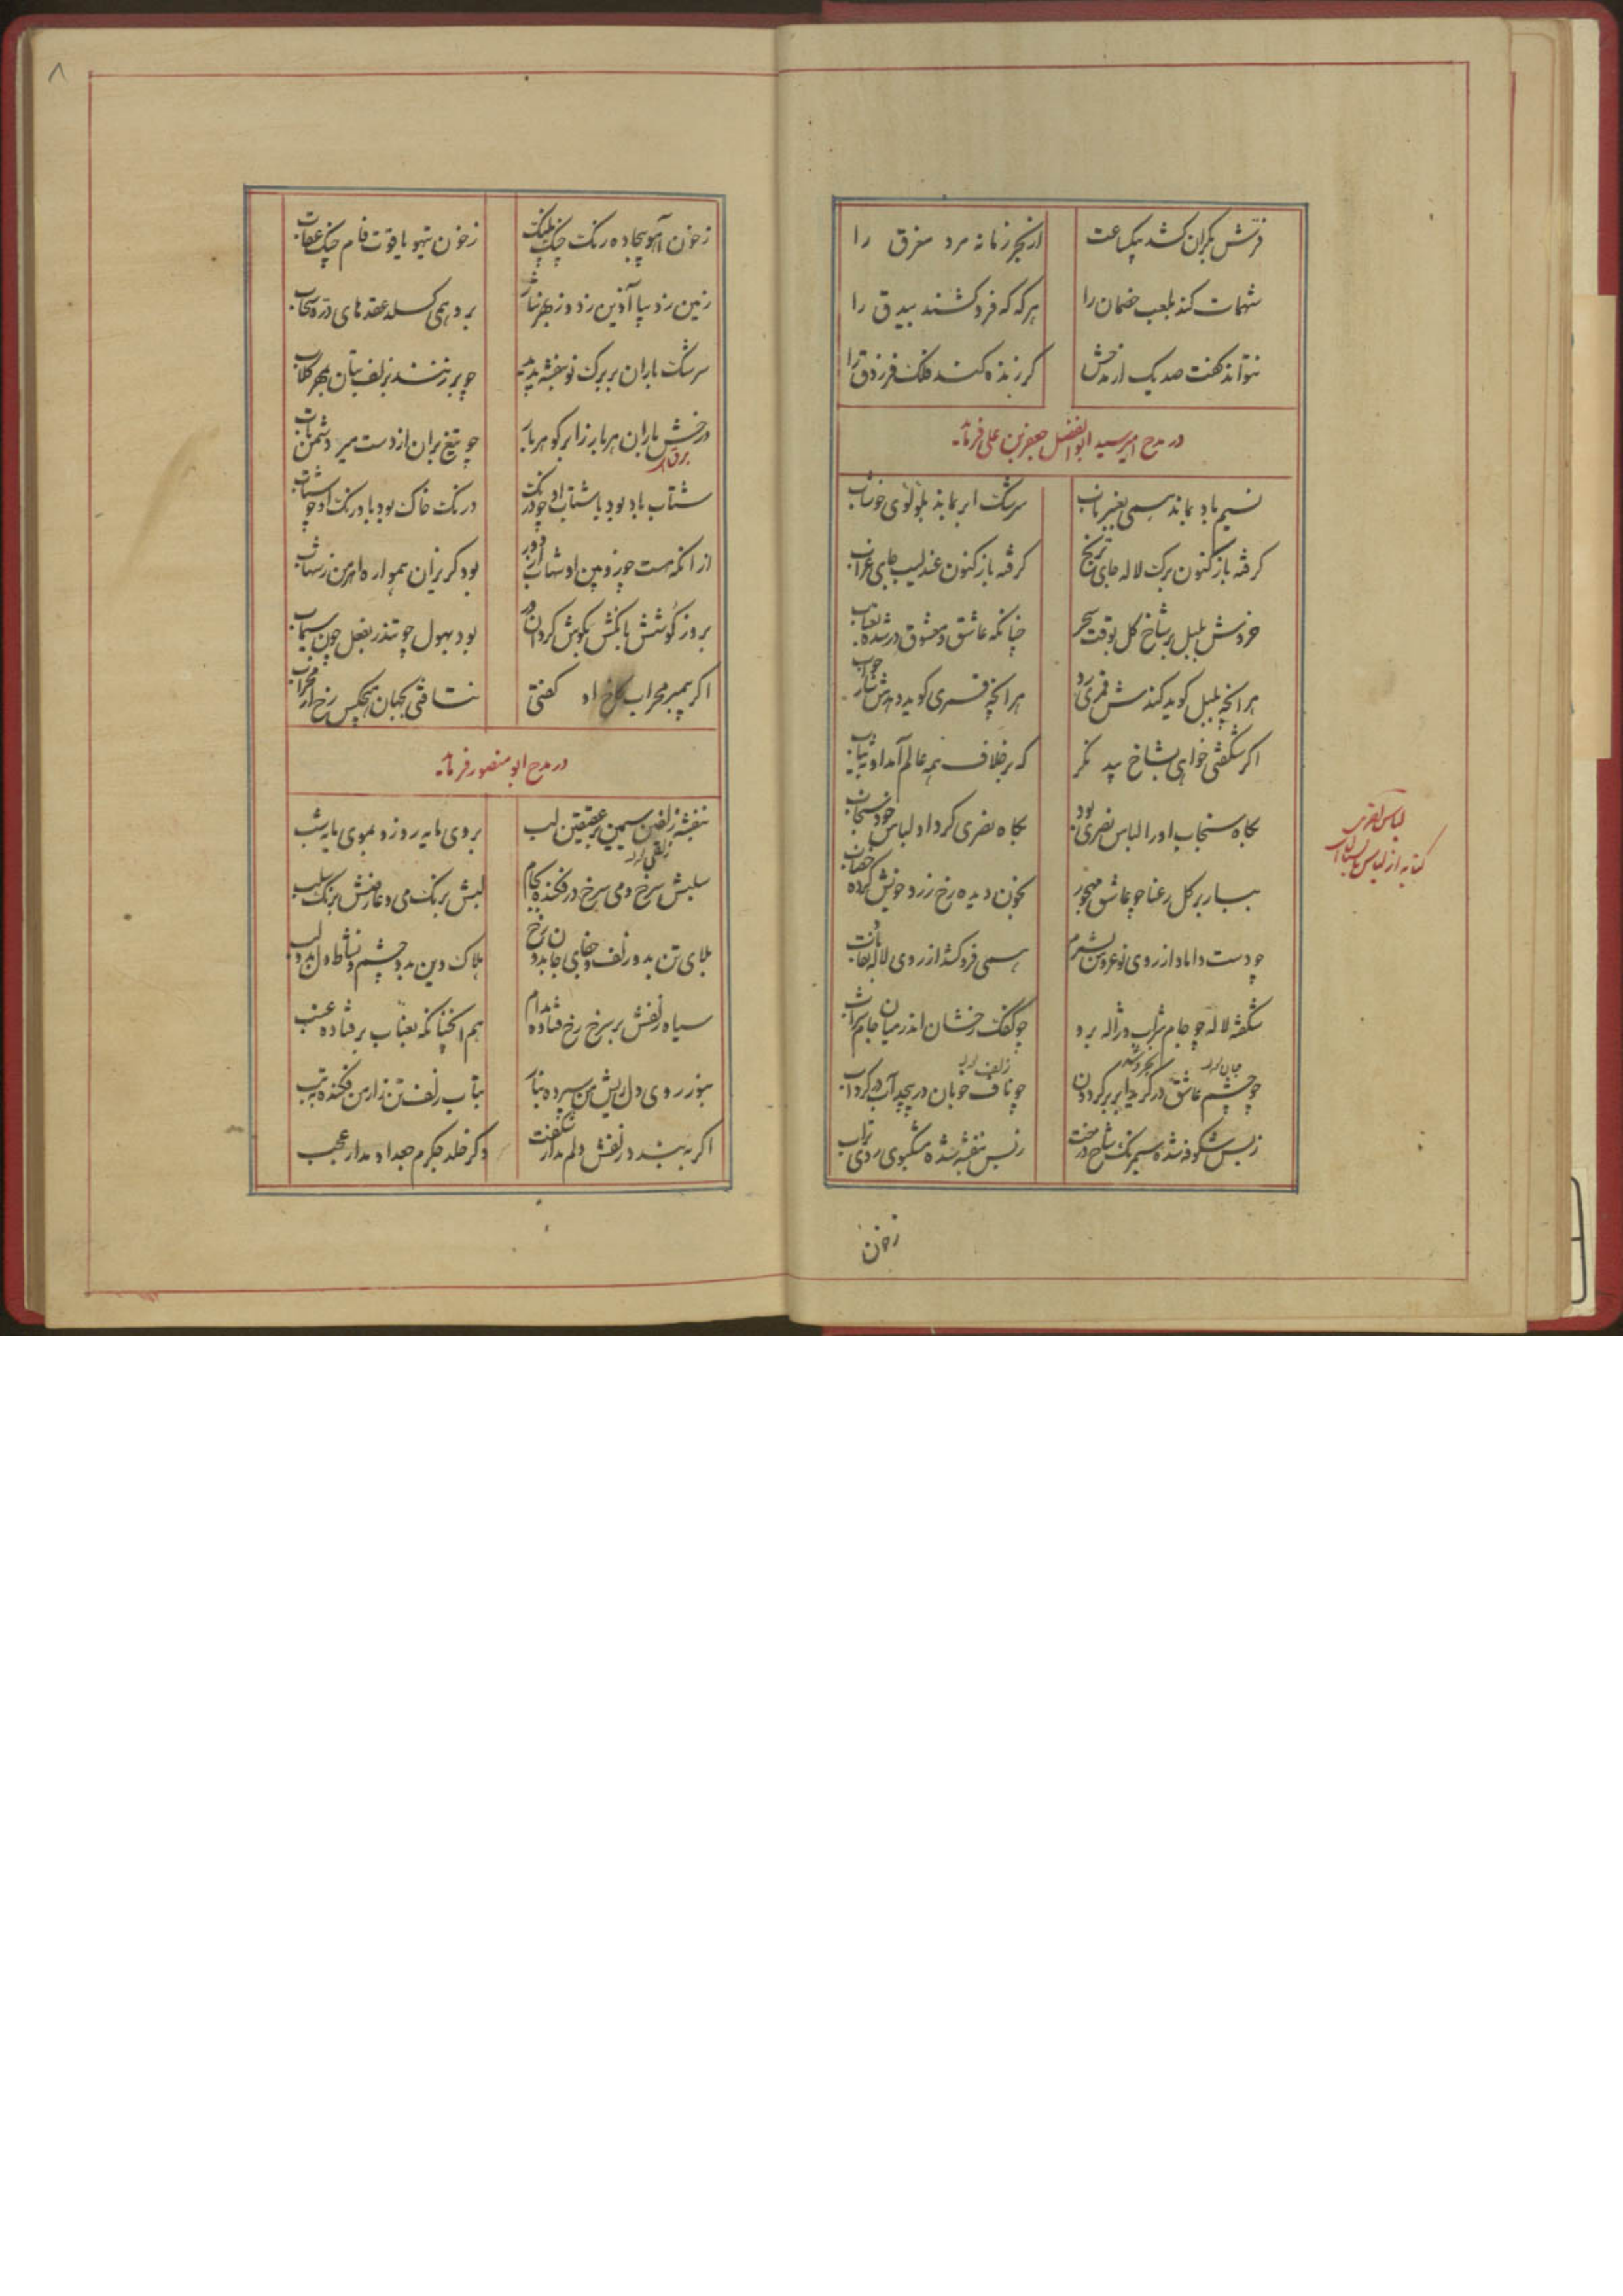 فرقش بکران کشد بیکساعت از بحر زمانه مرد مغرق را
شهمات کند بلعب خصمان را هر که که فرو کشند بیدق را
نتواند گفت صد یک از مدحش گر زنده کند فلک فرزدق را
در مدح امیر سید ابوالفضل جعفر بن علی فرماید
نسیم باد بماند همی بعنبر ناب سرشک ابر بماند بلؤلؤی خوشاب
گرفته باز کنون برگ لاله جای ترنج گرفته باز کنون عندلیب جای غراب
خروش بلبل بر شاخ گل بوقت سحر چنانکه عاشق و معشوق در شده بعتاب
هر آنچه بلبل گوید کندش قمری رد هر آنچه قمری گوید دهدش سار جواب
اگر شگفتی خواهی بشاخ بید نگر که بر خلاف همه عالم آمد او بثیاب
بگاه سنجاب او را لباس نصری بود بگاه نصری کرد او لباس خود سنجاب
لباس نصری
کنایه از لباس تابستان است
بهار بر گل رعنا چو عاشق مهجور بخون دیده رخ زرد خویش کرده خضاب
چو دست داماد از روی نوعروس بشرم همی فرو کشد از روی لاله باد نقاب
شکفته لاله چو جام شراب و ژاله برو چو کفک رخشان اندر میان جام شراب
چو چشم عاشق در گریه ابر بر گردون چو ناف خوبان در پیچد آب در گرداب
زبس شکوفه شده سیمرنگ شاخ درخت زبس بنفشه شده مشکبوی روی تراب
زخون
۸
زخون آهو بیجاده رنگ چنگ پلنگ زخون تیهو یاقوت فام چنگ عقاب
زمین زدیبا آذین زد و زبهر نثار برو همی گسلد عقدهای در سحاب
سرشک باران بر برگ نو بنفشه پدید چو بر زنند بزلف بتان بمهر گلاب
درخش باران هر بار زابر گوهر بار چو تیغ بران از دست میر دشمن یاب
برق
شتاب باد بود با شتاب او چو درنگ درنگ خاک بود با درنگ او چو شتاب
از آنکه هست چو زوبین او شهاب از دور بود گریزان همواره اهرمن زشهاب
بروز کوشش بانگش بگوش گردان در بود بهول چو تندر بفعل چون سیماب
اگر پیمبر محراب رخ او گفتی نتافتی بجهان هیچکس رخ از محراب
در مدح ابو منصور فرماید
بنفشه زلفین سیمین بر عقیقین لب بروی مایه روز و بموی مایه شب
سلبش سرخ و می سرخ در فکنده بجام لبش برنگ می و عارضش برنگ سلب
بلای تن بدو زلف و جفای جان بدو رخ هلاک دین بدو چشم و نشاط دل بدو لب
سیاه زلفش بر سرخ رخ فتاده مدام هم آنچنانکه بعناب بر فتاده عنب
بنور روی دل ریش من سپرده بنار بتاب زلف تن زار من فکنده بتب
اگر ببندد زلفش دلم مدار شگفت وگر خلد جگرم صعد او مدار عجب